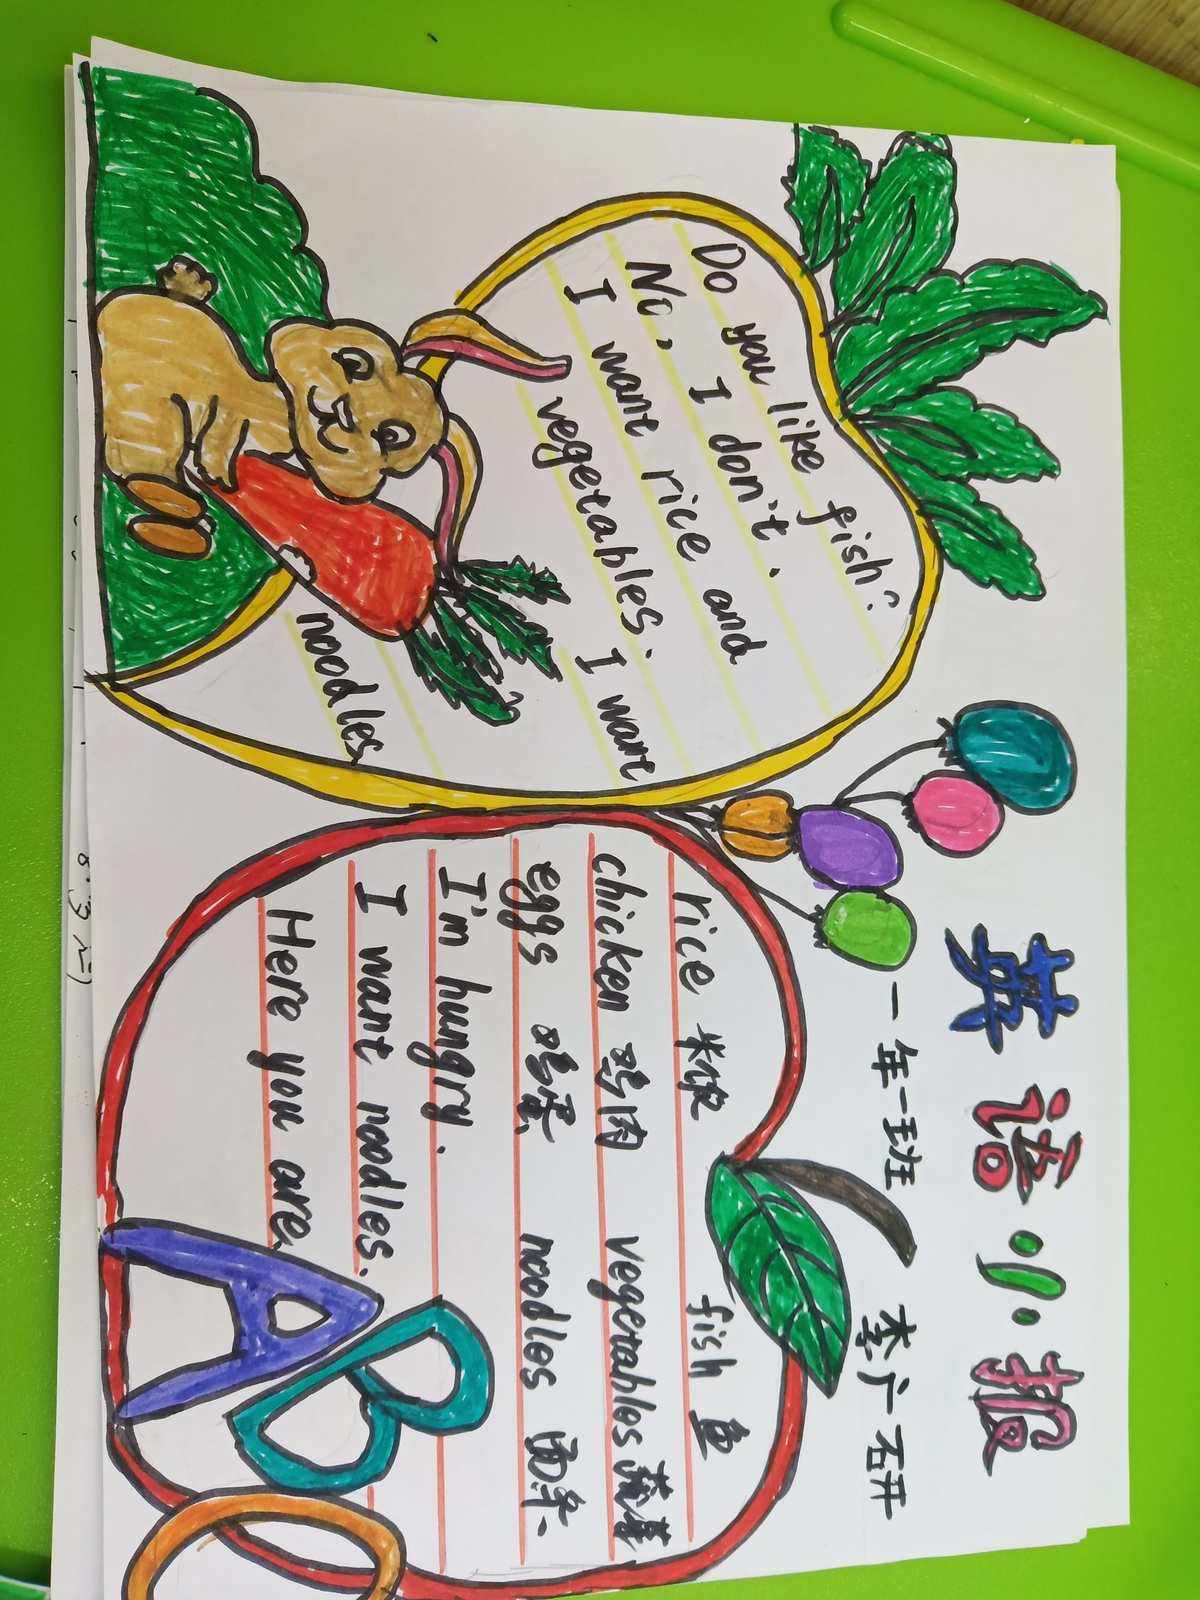 英语小报
一年一班 李广研
Do you like fish?
No, I don't.
I want rice and
vegetables. I want
noodles
rice 米饭 fish 鱼
chicken 鸡肉 vegetables 蔬菜
eggs 鸡蛋 noodles 面条
I'm hungry.
I want noodles.
Here you are
ABC